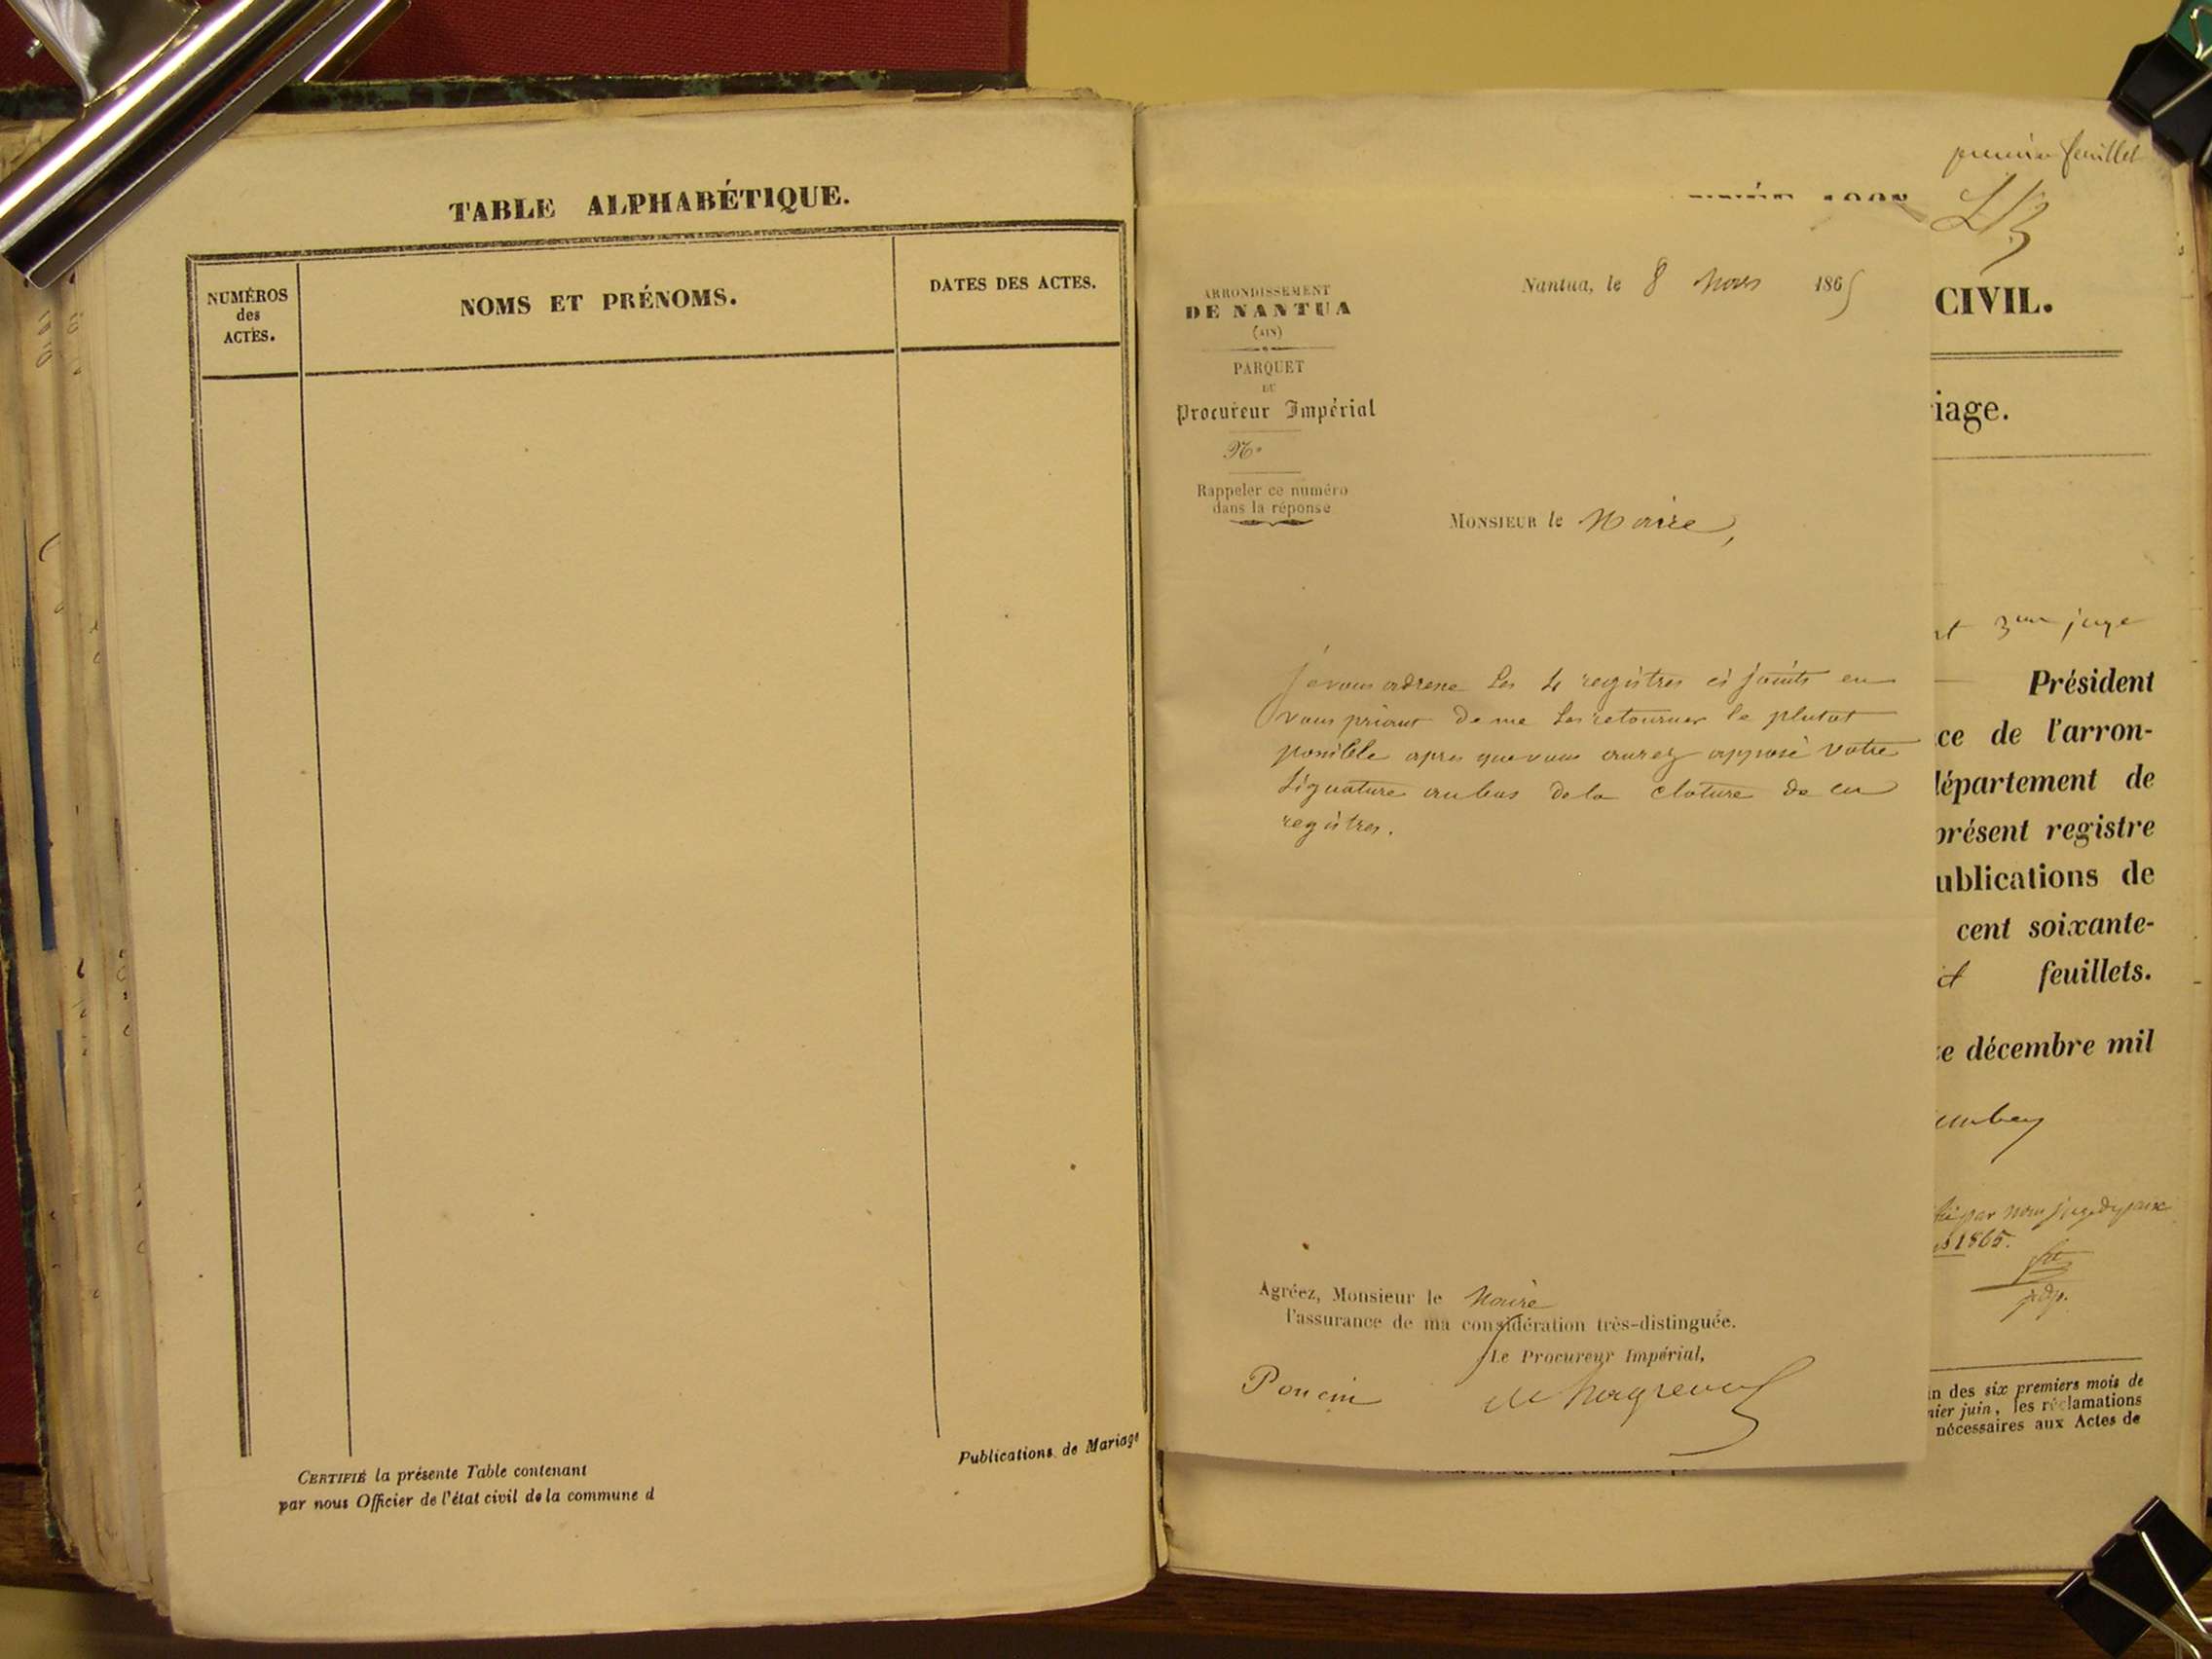 TABLE ALPHABÉTIQUE.
NUMÉROS
des
ACTES.
NOMS ET PRÉNOMS.
DATES DES ACTES.
CERTIFIÉ la présente Table contenant
par nous Officier de l'état civil de la commune d
Publications de Mariage
premier feuillet
ARRONDISSEMENT
DE NANTUA
(AIN)
PARQUET
DU
Procureur Impérial
N°
Rappeler ce numéro
dans la réponse
Nantua, le 8 Mars 1865
MONSIEUR le Maire,
Je vous adresse les 4 registres ci joints en
vous priant de me les retourner le plutot
possible apres que vous aurez apposé votre
signature au bas de la cloture de ces
registres.
Agréez, Monsieur le Maire
l'assurance de ma considération très-distinguée.
Le Procureur Impérial,
Poncin
CIVIL.
iage.
juge
Président
ce de l'arron-
département de
présent registre
ublications de
cent soixante-
feuillets.
e décembre mil
par nous juge de paix
1865.
in des six premiers mois de
nier juin, les réclamations
nécessaires aux Actes de